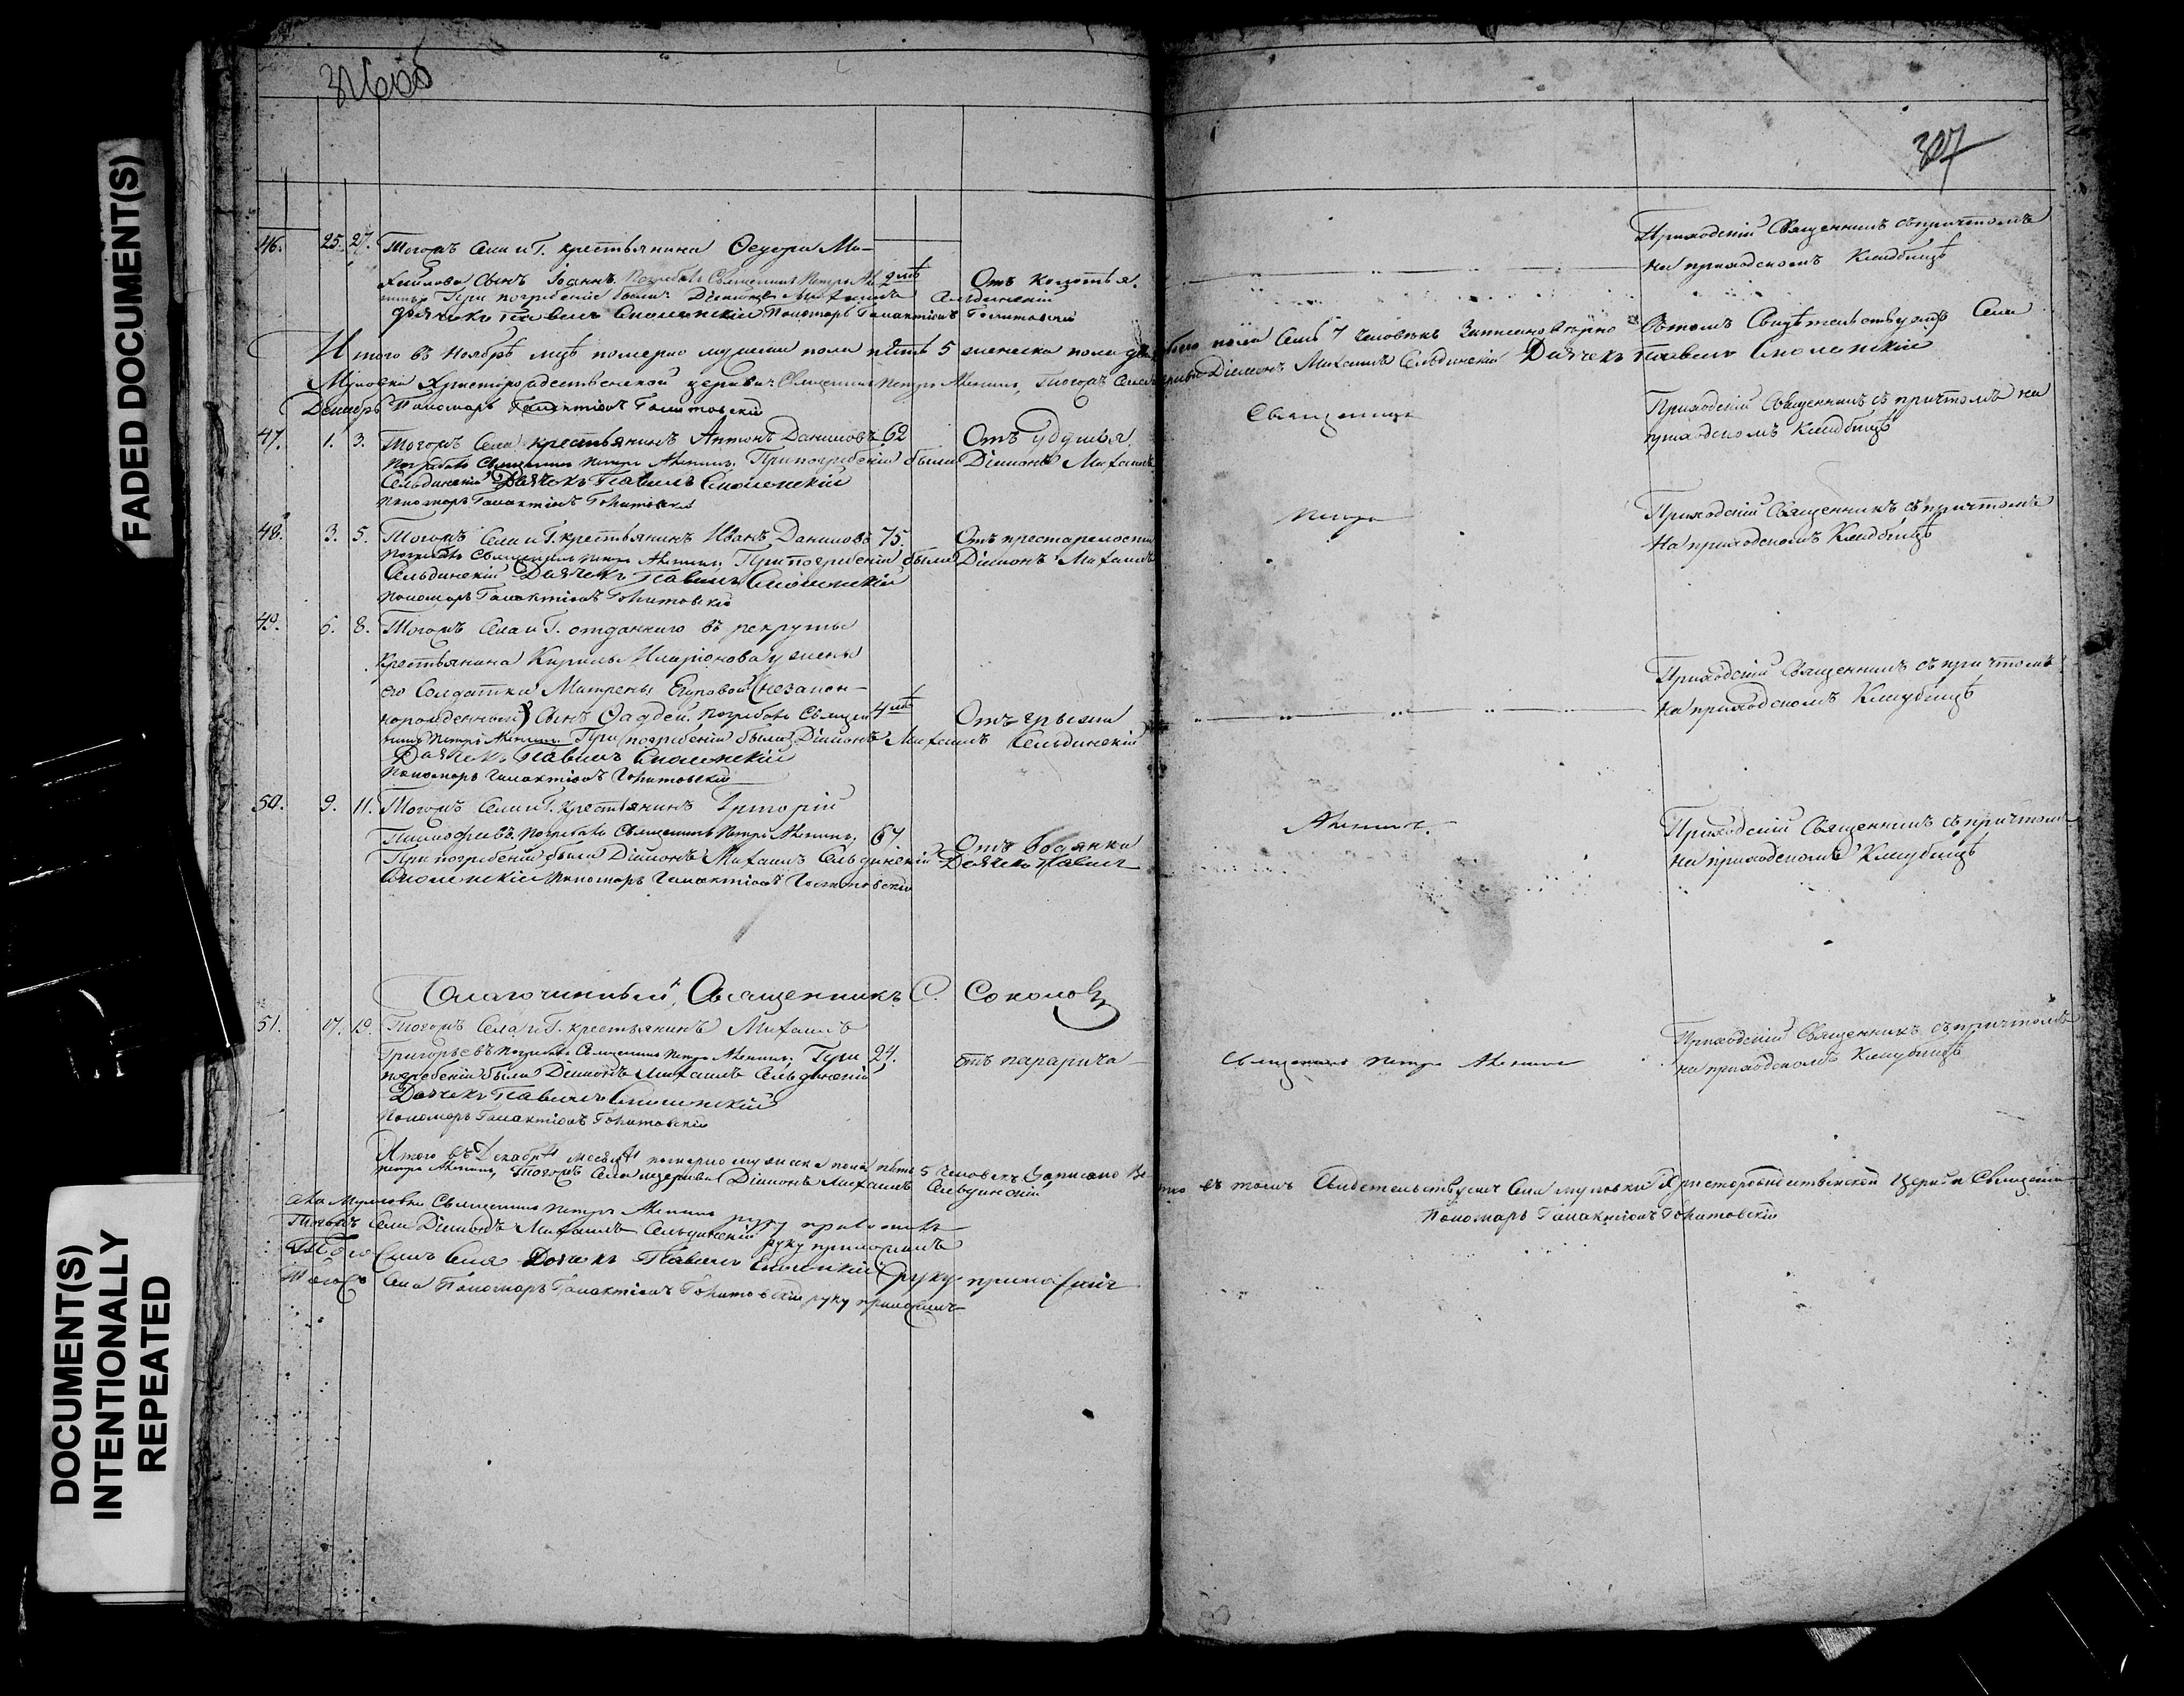 306об
307
46. 25. 27. Тогожъ Села и Г. крестьянина Ѳедора Ми-
хайлова Сынъ Іоаннъ. Погребалъ Священникъ Петръ 2 лѣтъ Отъ колотья. Приходскій Священникъ съ причтомъ
При погребеніи были Діаконъ Михаилъ Сельдинскій на приходскомъ Кладбищѣ
Дьячекъ Павелъ Смоленскій Пономарь Галактіонъ
Итого въ Ноябрѣ мцѣ померло мужеска пола пять 5 женска пола два обоего пола Семь 7 человѣкъ Записано вѣрно въ томъ Свидѣтельствуютъ Села
Христорождественской церкви Священникъ Петръ Тогожъ Села церкви Діаконъ Михаилъ Сельдинскій Дьячекъ Павелъ Смоленскій
Декабрь Пономарь Галактіонъ
Священникъ
47. 1. 3. Тогожъ Села крестьянинъ Антонъ Даниловъ 62 Отъ удушья Приходскій Священникъ съ причтомъ на
Погребалъ Священникъ Петръ При погребеніи были Діаконъ Михаилъ приходскомъ Кладбищѣ
Сельдинскій Дьячокъ Павелъ Смоленскій
Пономарь Галактіонъ
48. 3. 5. Тогожъ Села и Г. крестьянинъ Иванъ Даниловъ 75. Отъ престарелости Петръ Приходскій Священникъ съ причтомъ
Погребалъ Священникъ Петръ При погребеніи были Діаконъ Михаилъ На приходскомъ Кладбищѣ
Сельдинскій Дьячекъ Павелъ Смоленскій
Пономарь Галактіонъ
49. 6. 8. Тогожъ Села и Г. отданнаго въ рекруты
Крестьянина Кирилы Иларіонова у жены
его Солдатки Матрены Егоровой (незакон-
норожденный) Сынъ Ѳаддей. Погребалъ Священ 4 лѣтъ Отъ грыжи Приходскій Священникъ съ причтомъ
никъ Петръ При погребеніи были Діаконъ Михаилъ Сельдинскій на приходскомъ Кладбищѣ
Дьячекъ Павелъ Смоленскій
Пономарь Галактіонъ
50. 9. 11. Тогожъ Села и Г. Крестьянинъ Григорій
Тимофеевъ. Погребалъ Священникъ Петръ 67 Отъ водянки Приходскій Священникъ съ причтомъ
При погребеніи были Діаконъ Михаилъ Сельдинскій Дьячекъ Павелъ на приходскомъ Кладбищѣ
Смоленскій Пономарь Галактіонъ
Благочинный, Священникъ С. Соколовъ
51. 17. 19. Тогожъ Села и Г. крестьянинъ Михаилъ
Григорьевъ Погребалъ Священникъ Петръ При 24. отъ парарича Священникъ Петръ Приходскій Священникъ съ причтомъ
погребеніи были Діаконъ Михаилъ Сельдинскій на приходскомъ Кладбищѣ
Дьячекъ Павелъ Смоленскій
Пономарь Галактіонъ
Итого въ Декабрѣ месяцѣ померло мужеска пола пять 5 человекъ Записано вѣрно въ томъ Свидетельствуютъ Села Христорождественской Церкви Священникъ
Петръ Тогожъ Села церкви Діаконъ Михаилъ Сельдинскій Пономарь Галактіонъ
Села Священникъ Петръ руку приложилъ
Тогожъ Села Діаконъ Михаилъ Сельдинскій руку приложилъ
Села Дьячекъ Павелъ Смоленскій руку приложилъ
Тогожъ Села Пономарь Галактіонъ руку приложилъ
FADED DOCUMENT(S)
DOCUMENT(S)
INTENTIONALLY
REPEATED